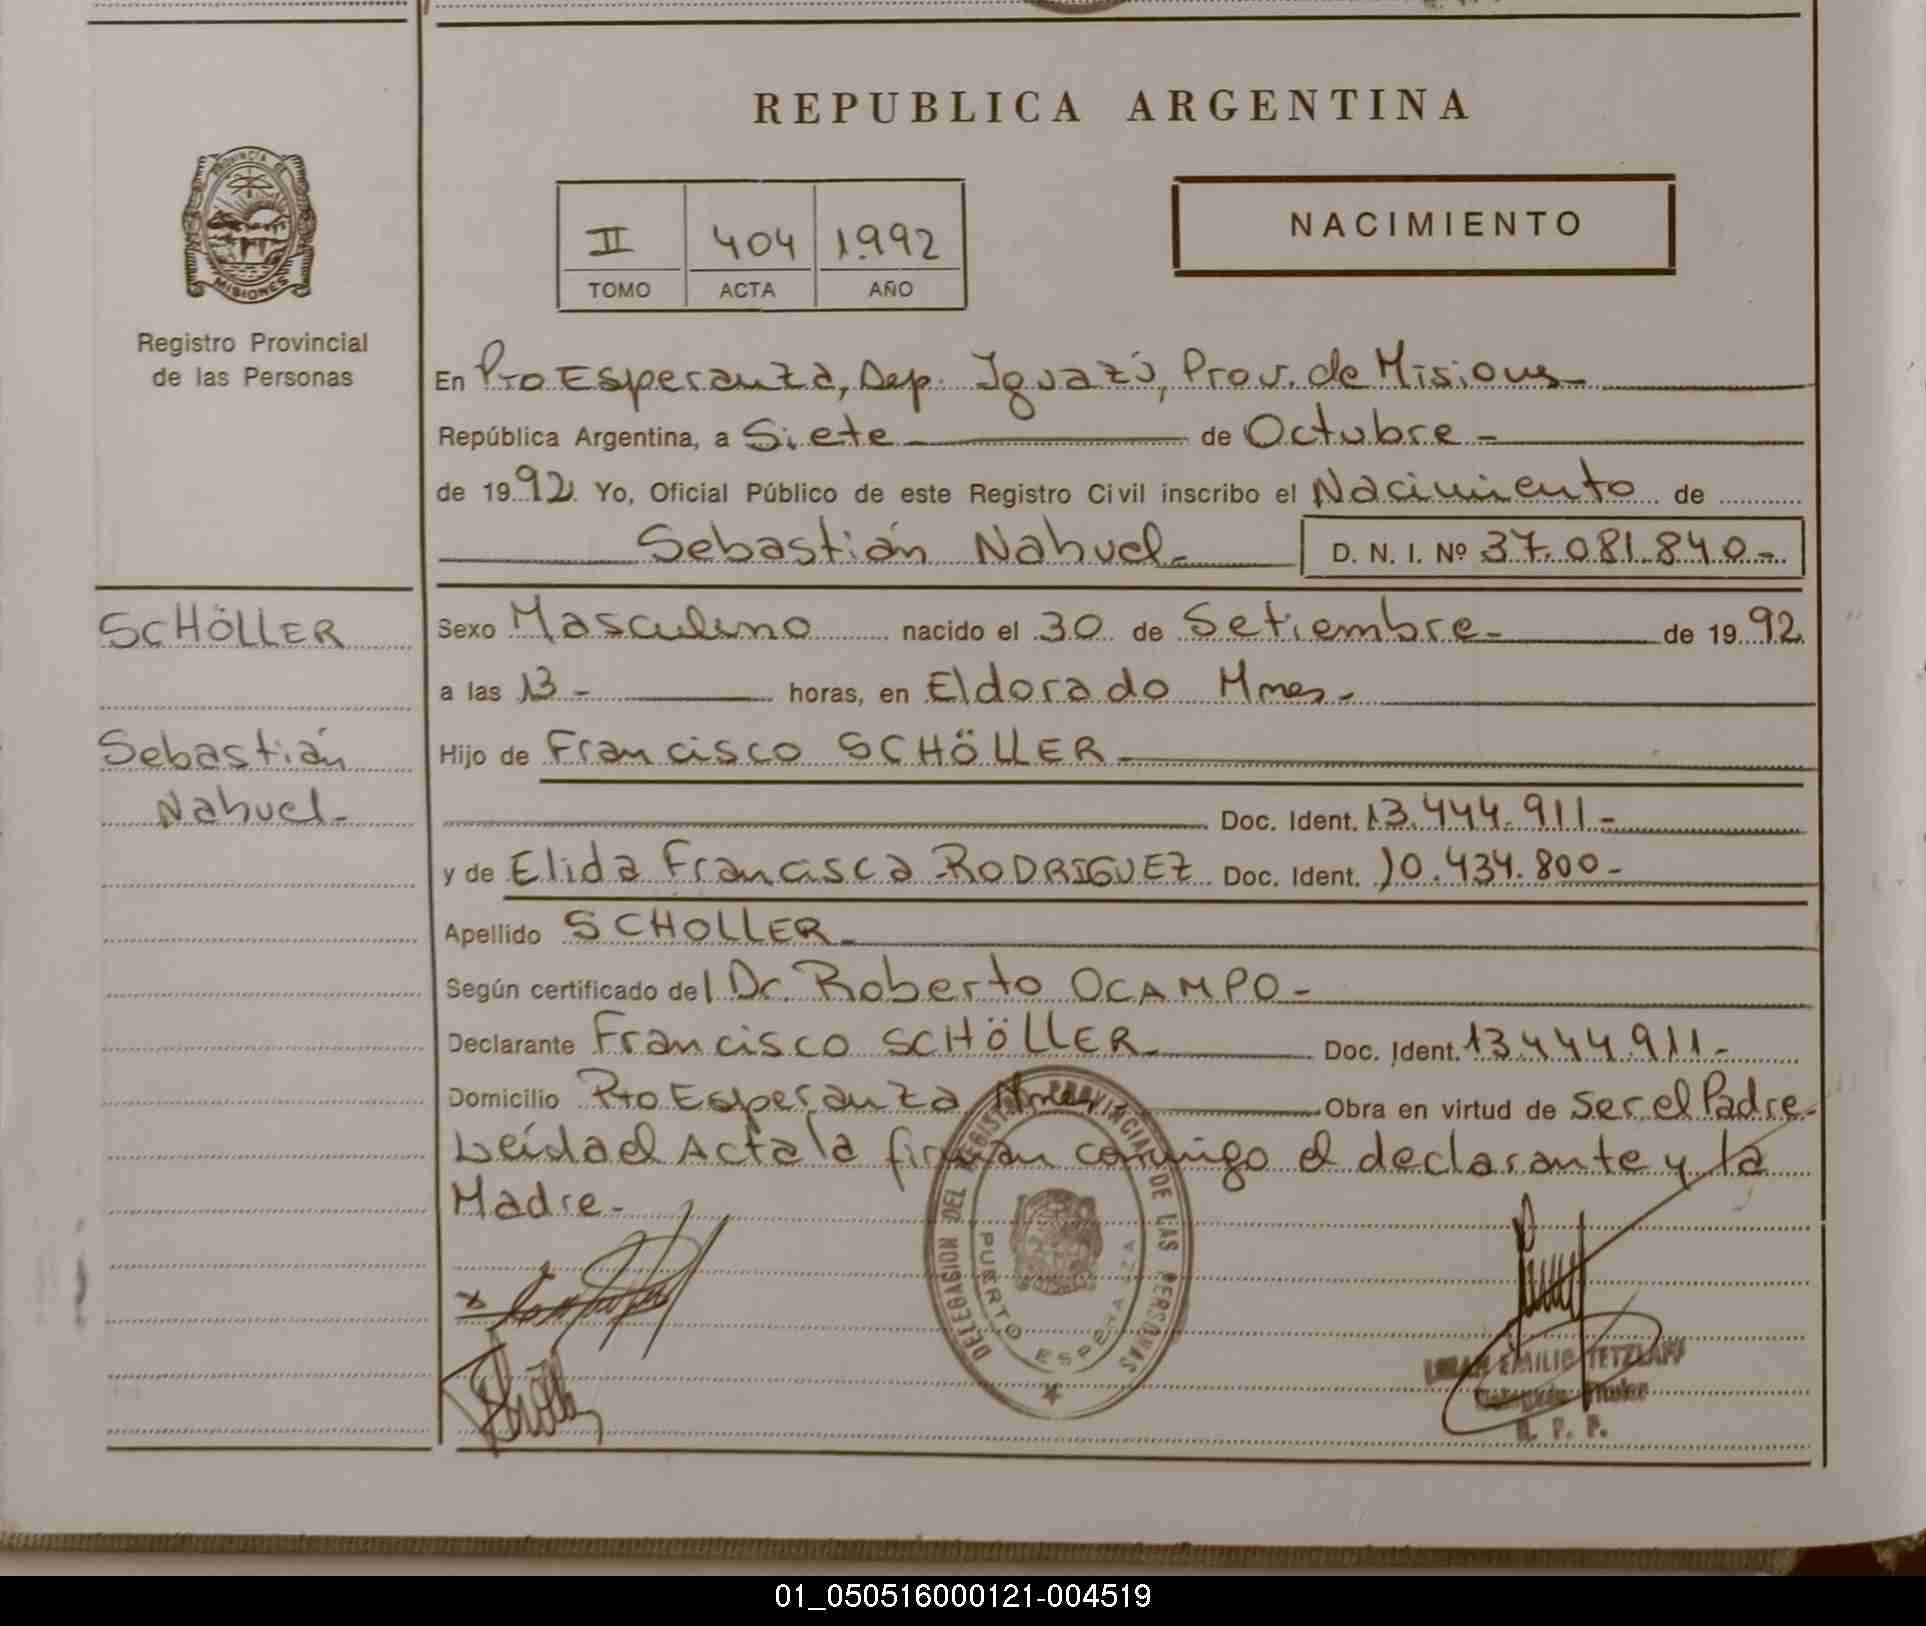 REPUBLICA ARGENTINA
PROVINCIA DE
MISIONES
Registro Provincial
de las Personas
II 404 1.992
TOMO ACTA AÑO
NACIMIENTO
En Pto Esperanza, Dep. Iguazú, Prov. de Misiones
República Argentina, a Siete de Octubre -
de 1992. Yo, Oficial Público de este Registro Civil inscribo el Nacimiento de
Sebastián Nahuel - D. N. I. Nº 37.081.840.-
SCHÖLLER
Sebastián
Nahuel -
Sexo Masculino nacido el 30 de Setiembre - de 1992
a las 13 - horas, en Eldorado Mnes -
Hijo de Francisco SCHÖLLER
Doc. Ident. 13.444.911 -
y de Elida Francisca RODRIGUEZ Doc. Ident. 10.434.800 -
Apellido SCHOLLER -
Según certificado del Dr. Roberto OCAMPO -
Declarante Francisco SCHÖLLER - Doc. Ident. 13.444.911 -
Domicilio Pto Esperanza Mnes Obra en virtud de ser el Padre -
Leída el Acta la firman conmigo el declarante y la
Madre -
DELEGACION DEL REGISTRO PROVINCIAL DE LAS PERSONAS
PUERTO ESPERANZA
EMILIO TETZLAFF
Titular
R. P. P.
01_050516000121-004519